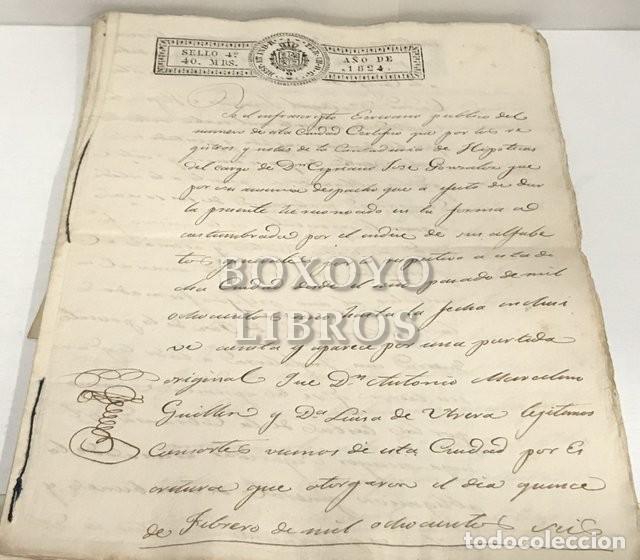 SELLO 4º
40. MRS.
AÑO DE
1824.
Yo el infrascripto Escrivano publico del
numero de esta Ciudad Certifico que por los re
gistros y notas de la Contaduria de Hipotecas
del cargo de Dn. Cipriano José Gonzalez que
por su ausencia despacho que a efecto de dar
la presente he reconocido en la forma a
costumbrada por el indice de sus alfabe
tos generales por lo respectivo a esta di
cha Ciudad desde el año pasado de mil
ochocientos seis hasta la fecha inclusi
ve consta y aparece por una partida
original Que Dn. Antonio Marcelino
Guillen y Da. Luisa de Utrera legitimos
Consortes vecinos de esta Ciudad por Es
critura que otorgaron el dia quince
de Febrero de mil ochocientos seis
BOXOYO
LIBROS
todocoleccion